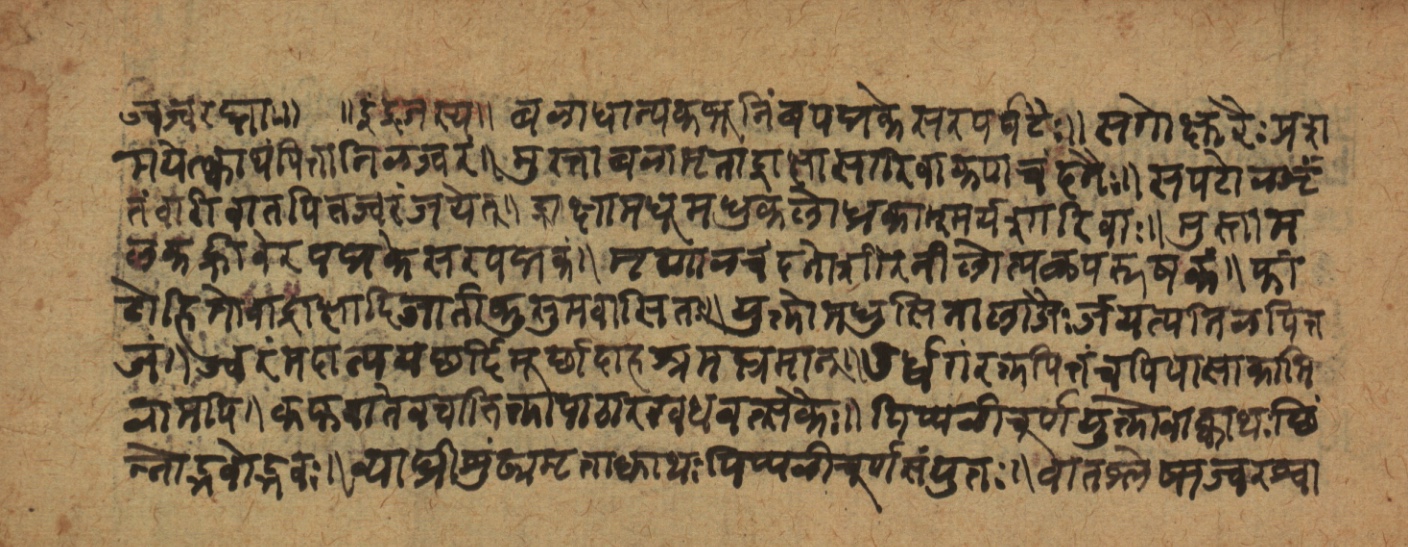 ज्वज्वरघ्ना॥॥ ॥द्वंद्वजस्य॥ बलाधान्यकभूनिंबपद्मकेसरपर्पटैः॥ सगोक्षुरैः
मयेत्क्वाथं पित्तानिलज्वरं॥ मुस्ताबलामृताद्राक्षासारिवा चंदनैः॥ सपटोल
तं वारि वातपित्तज्वरं जयेत्॥ द्राक्षामधूमधुकलोध्रकाश्मर्यसारिवाः॥ मुस्ताम
लकह्रीवेरपद्मकेसरपद्मकं॥ मृणालचंदनोशीरनीलोत्पलपरूषकं॥ फां
टो हिमो वा द्राक्षादि जातीकुसुमवासितः॥ युक्तो मधुसितालाजैः र्जयत्यनिलपित्त
जं॥ ज्वरं मदात्ययछर्दिमूर्छादाहश्रमभ्रमान्॥ ऊर्ध्वगं रक्तपित्तं च पिपासाकामि
लामपि॥ कफवाते वचातिक्तापाठारग्वधवत्सकैः॥ पिप्पलीचूर्णयुक्तो वा क्वाथः छिं
न्नोद्भवोद्भवः॥ व्याघ्रीशुंठ्यमृताक्वाथः पिप्पलीचूर्णसंयुतः॥ वातश्लेष्मज्वरश्वा